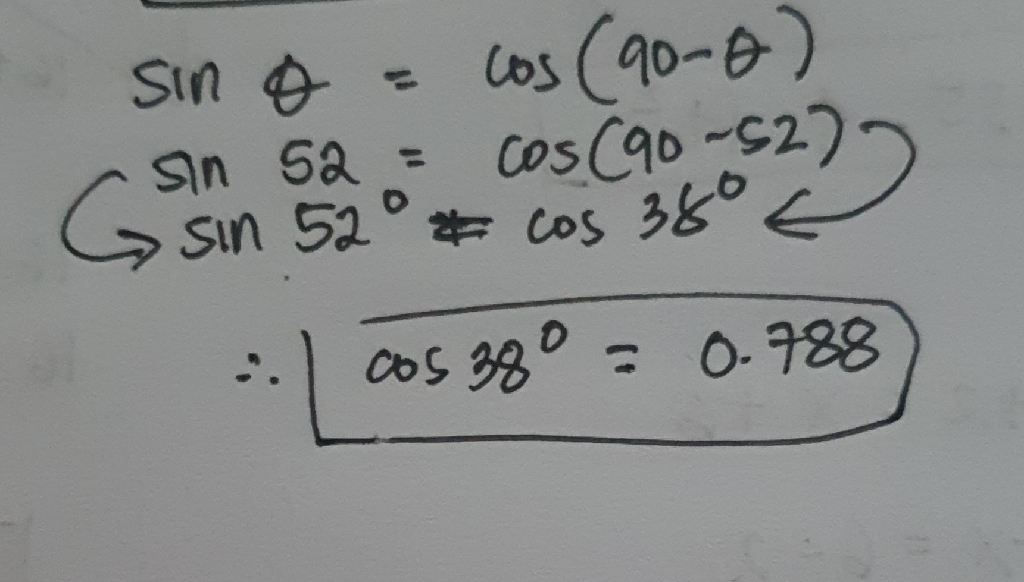 sin θ = cos (90-θ)
sin 52 = cos (90-52)
sin 52° = cos 38°
∴ cos 38° = 0.788